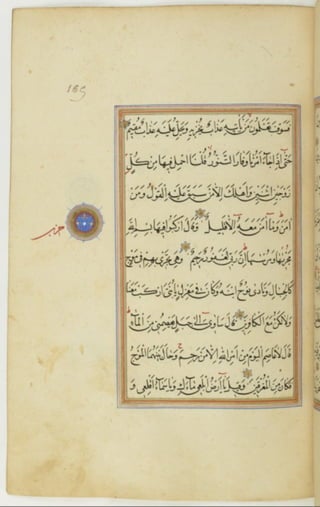 فَسَوْفَ تَعْلَمُونَ مَنْ يَأْتِيهِ عَذَابٌ يُخْزِيهِ وَيَحِلُّ عَلَيْهِ عَذَابٌ مُقِيمٌ
حَتَّى إِذَا جَاءَ أَمْرُنَا وَفَارَ التَّنُّورُ قُلْنَا احْمِلْ فِيهَا مِنْ كُلٍّ
زَوْجَيْنِ اثْنَيْنِ وَأَهْلَكَ إِلَّا مَنْ سَبَقَ عَلَيْهِ الْقَوْلُ وَمَنْ
آمَنَ وَمَا آمَنَ مَعَهُ إِلَّا قَلِيلٌ وَقَالَ ارْكَبُوا فِيهَا بِسْمِ اللَّهِ
مَجْرِيهَا وَمُرْسَيهَا إِنَّ رَبِّي لَغَفُورٌ رَحِيمٌ وَهِيَ تَجْرِي بِهِمْ فِي مَوْجٍ
كَالْجِبَالِ وَنَادَى نُوحٌ ابْنَهُ وَكَانَ فِي مَعْزِلٍ يَا بُنَيَّ ارْكَبْ مَعَنَا
وَلَا تَكُنْ مَعَ الْكَافِرِينَ قَالَ سَآوِي إِلَى جَبَلٍ يَعْصِمُنِي مِنَ الْمَاءِ
قَالَ لَا عَاصِمَ الْيَوْمَ مِنْ أَمْرِ اللَّهِ إِلَّا مَنْ رَحِمَ وَحَالَ بَيْنَهُمَا الْمَوْجُ
فَكَانَ مِنَ الْمُغْرَقِينَ وَقِيلَ يَا أَرْضُ ابْلَعِي مَاءَكِ وَيَا سَمَاءُ أَقْلِعِي وَ
حزب